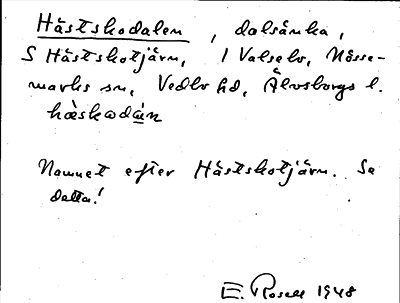 Hästskodalen, dalsänka,
S Hästskotjärn, 1 Valsebo, Nösse-
marks sn, Vedbo hd, Älvsborgs l.
hàskɷdàn
Namnet efter Hästskotjärn. Se
detta!
E. Rosell 1948